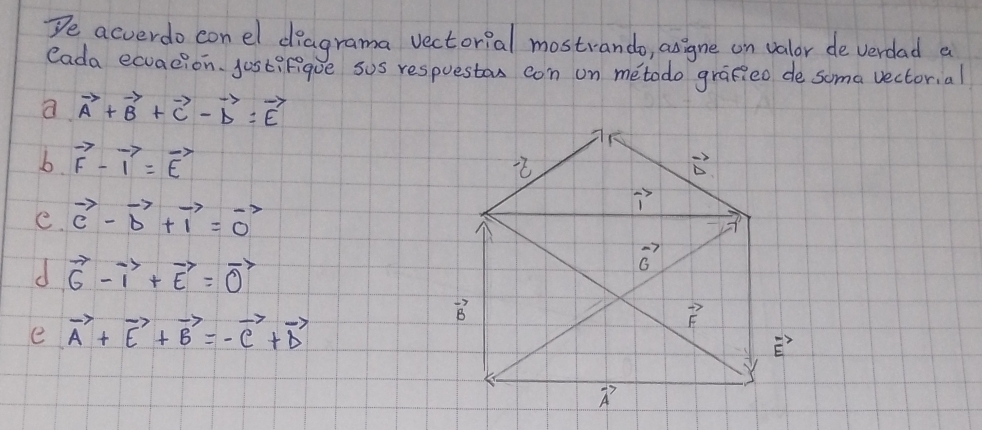 De acuerdo con el diagrama vectorial mostrando, asigne un valor de verdad a
Cada ecuación. Justifique sus respuestas con un método gráfico de suma vectorial
a. A⃗ + B⃗ + C⃗ - D⃗ = E⃗
b. F⃗ - I⃗ = E⃗
c. C⃗ - D⃗ + I⃗ = O⃗
d G⃗ - I⃗ + E⃗ = O⃗
e A⃗ + E⃗ + B⃗ = -C⃗ + D⃗
D⃗
I⃗
G⃗
B⃗
F⃗
E⃗
A⃗